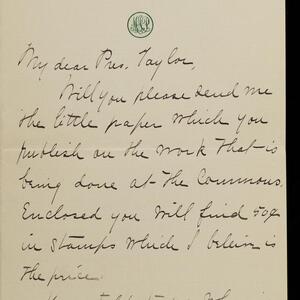 My dear Pres. Taylor,
Will you please send me
the little paper which you
publish on the work that is
being done at the Commons.
Enclosed you will find 50¢
in stamps which I believe is
the price.